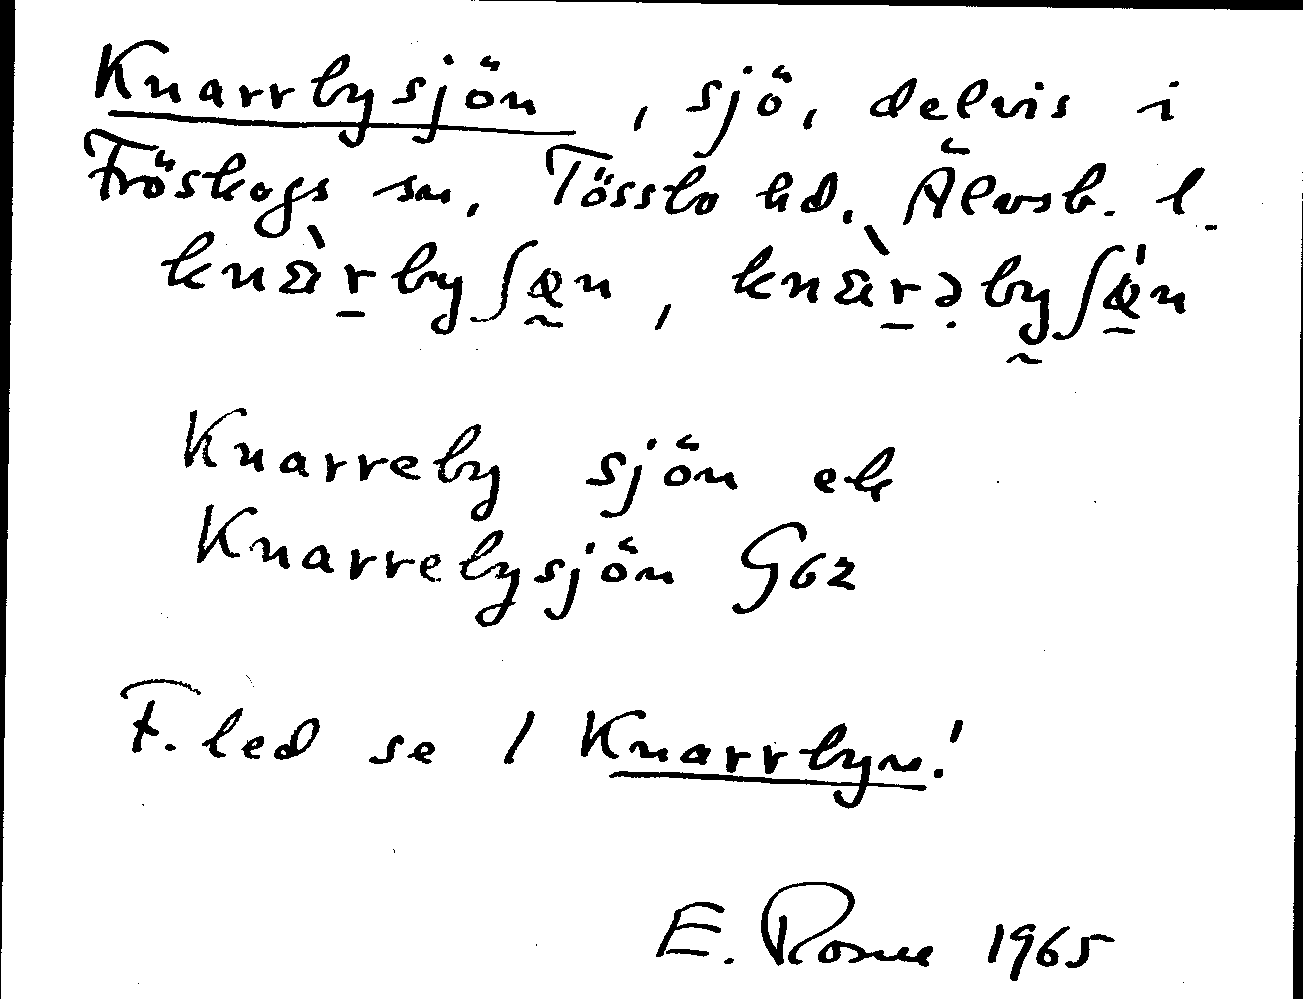 Knarrbysjön, sjö, delvis i
Fröskogs sn, Tössbo hd, Älvsb. l.
Knarreby sjön ek
Knarrebysjön G62
F. led se / Knarrbyn!
E. Rosne 1965